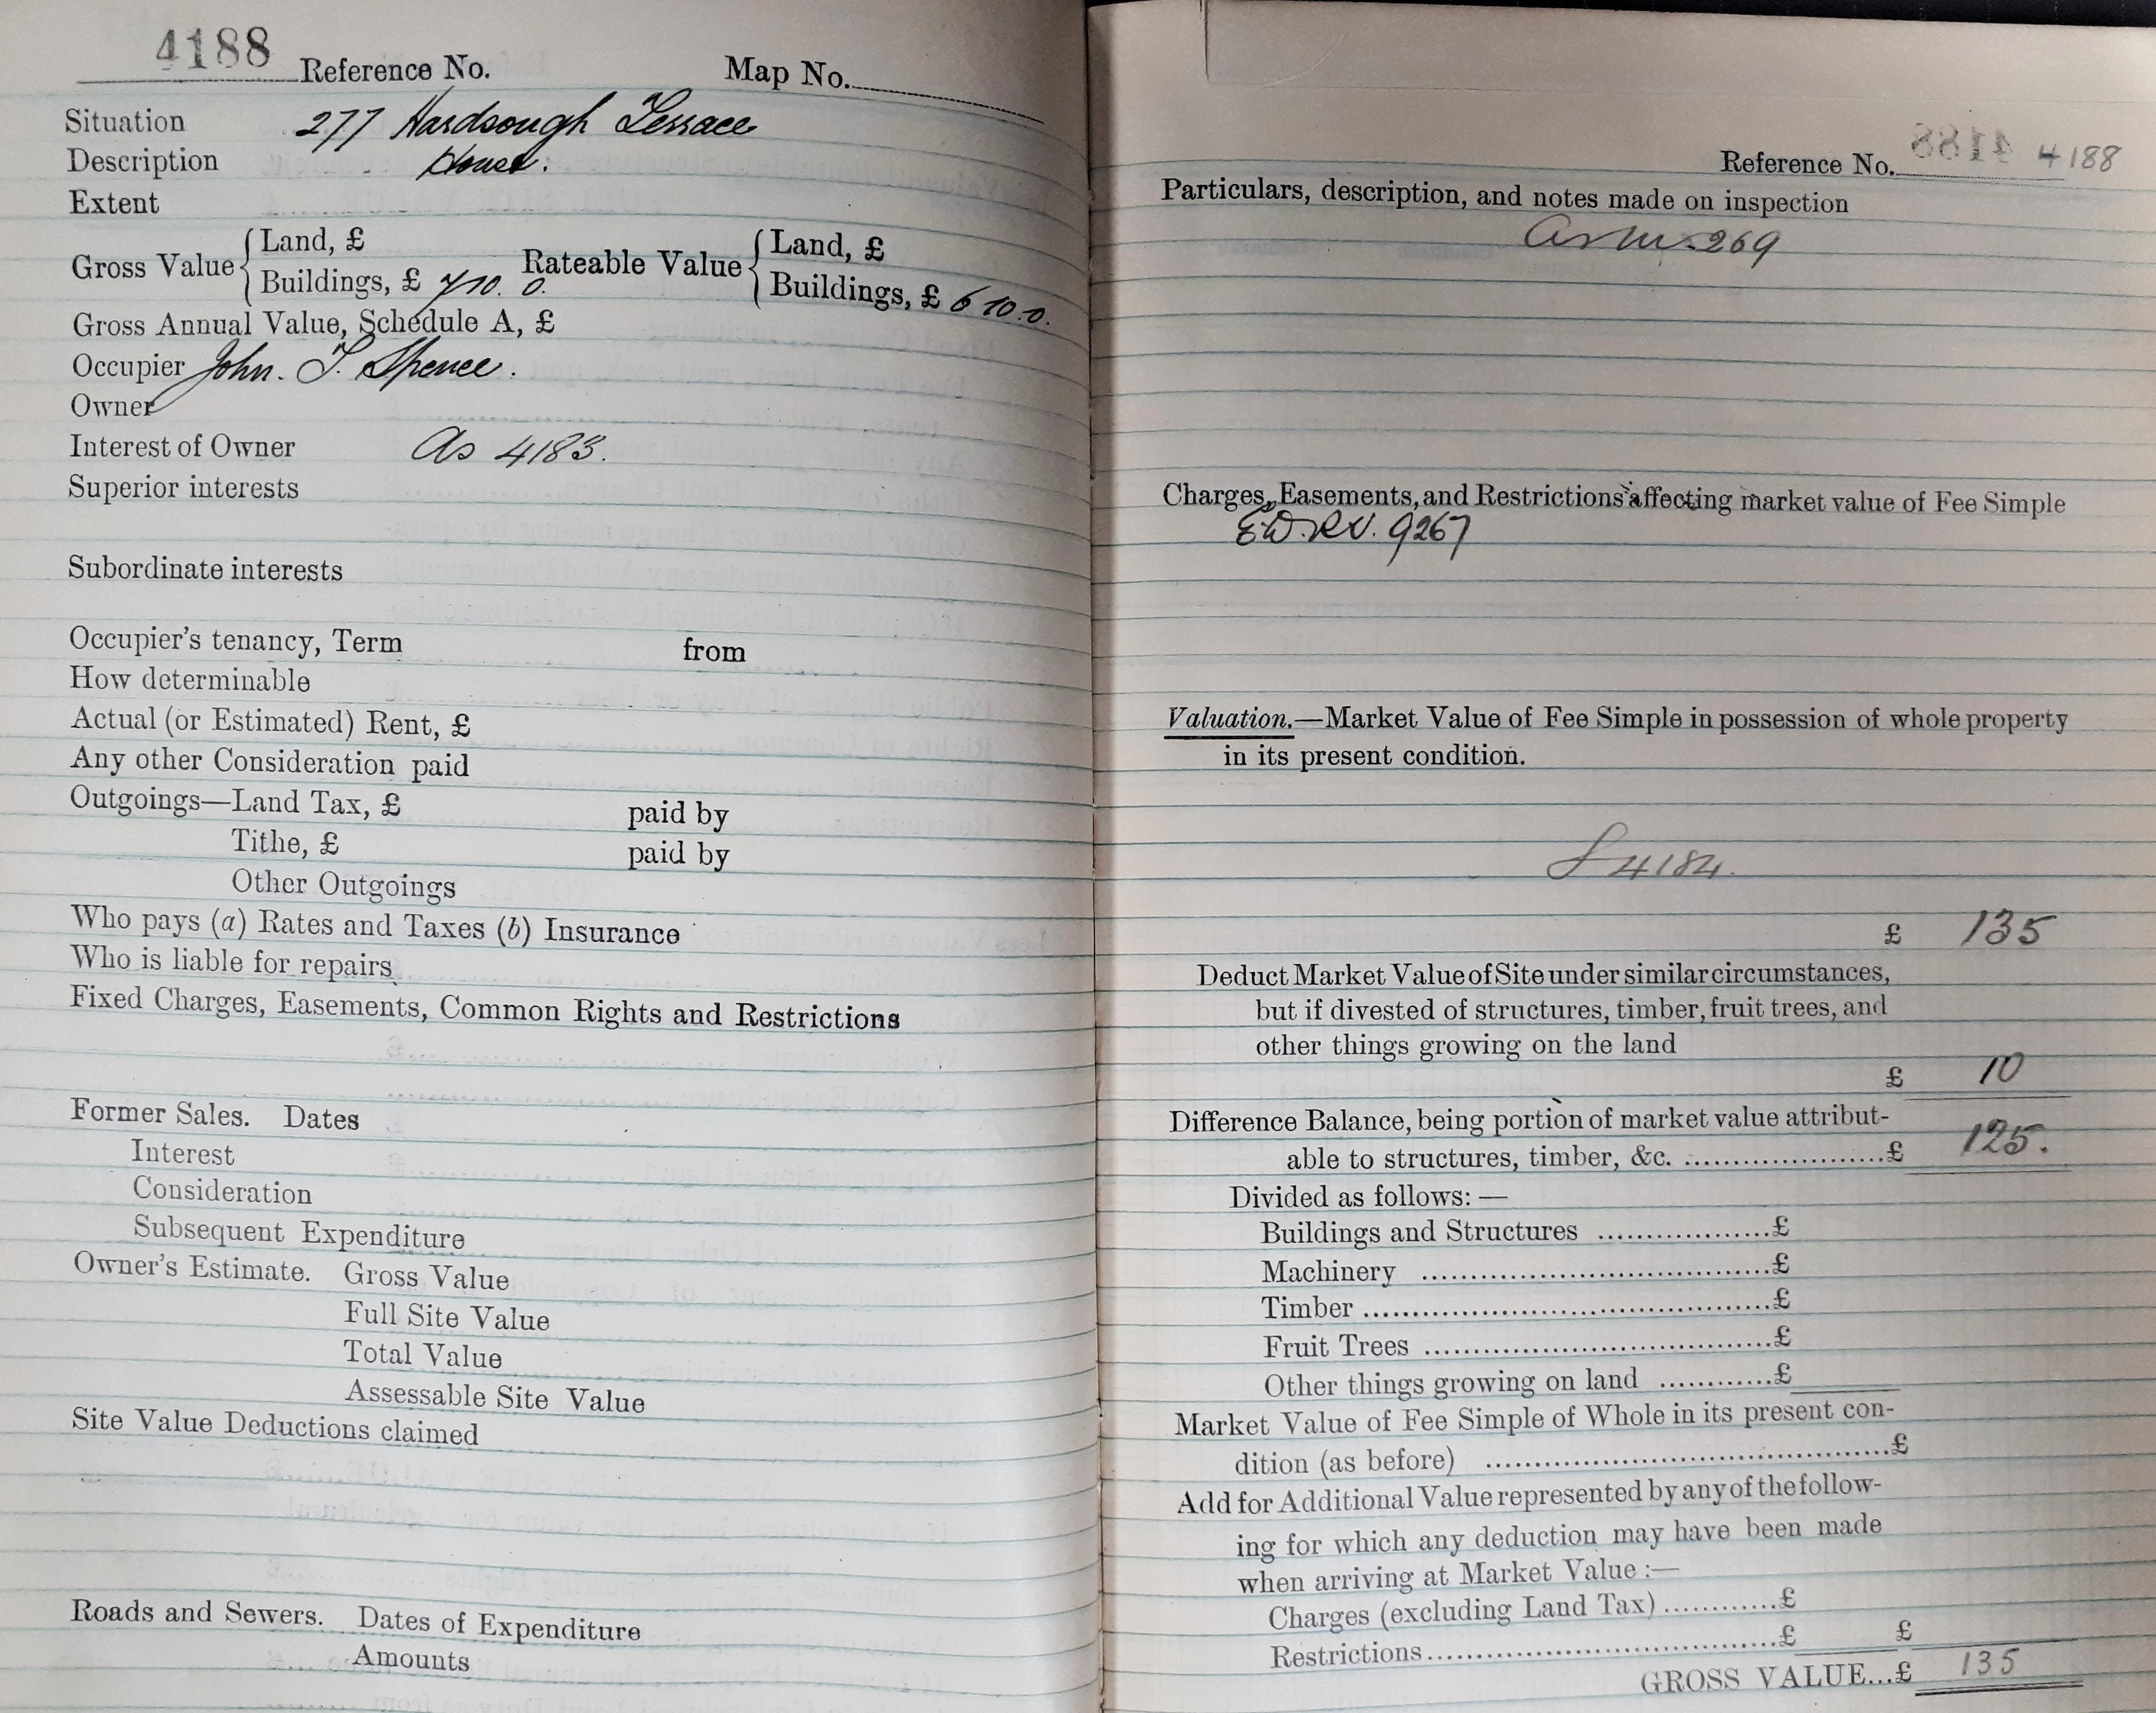 4188 Reference No. Map No.
Situation 277 Hardsough Terrace
Description House.
Extent
Gross Value { Land, £ Rateable Value { Land, £
Buildings, £ 7 10. 0. Buildings, £ 6 10.0.
Gross Annual Value, Schedule A, £
Occupier John. T. Spence.
Owner
Interest of Owner As 4183.
Superior interests
Subordinate interests
Occupier's tenancy, Term from
How determinable
Actual (or Estimated) Rent, £
Any other Consideration paid
Outgoings—Land Tax, £ paid by
Tithe, £ paid by
Other Outgoings
Who pays (a) Rates and Taxes (b) Insurance
Who is liable for repairs
Fixed Charges, Easements, Common Rights and Restrictions
Former Sales. Dates
Interest
Consideration
Subsequent Expenditure
Owner's Estimate. Gross Value
Full Site Value
Total Value
Assessable Site Value
Site Value Deductions claimed
Roads and Sewers. Dates of Expenditure
Amounts
Reference No. 4188
Particulars, description, and notes made on inspection
269
Charges, Easements, and Restrictions affecting market value of Fee Simple
9267
Valuation.—Market Value of Fee Simple in possession of whole property
in its present condition.
4184.
£ 135
Deduct Market Value of Site under similar circumstances,
but if divested of structures, timber, fruit trees, and
other things growing on the land
£ 10
Difference Balance, being portion of market value attribut-
able to structures, timber, &c. ....................£ 125.
Divided as follows:—
Buildings and Structures ..................£
Machinery ....................................£
Timber ..........................................£
Fruit Trees ....................................£
Other things growing on land ............£
Market Value of Fee Simple of Whole in its present con-
dition (as before) ..........................................£
Add for Additional Value represented by any of the follow-
ing for which any deduction may have been made
when arriving at Market Value :—
Charges (excluding Land Tax) ............£
Restrictions ....................................£ £
GROSS VALUE...£ 135